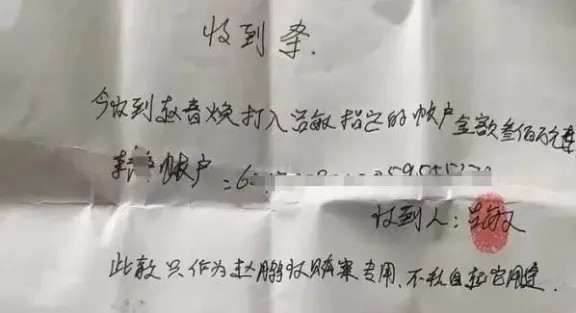 收到条.
今收到赵春焕打入吕敏指定的帐户金额叁佰万元整
帐户:6
收到人:吕敏
此款只作为赵鹏收购案专用,不私自起它用途.